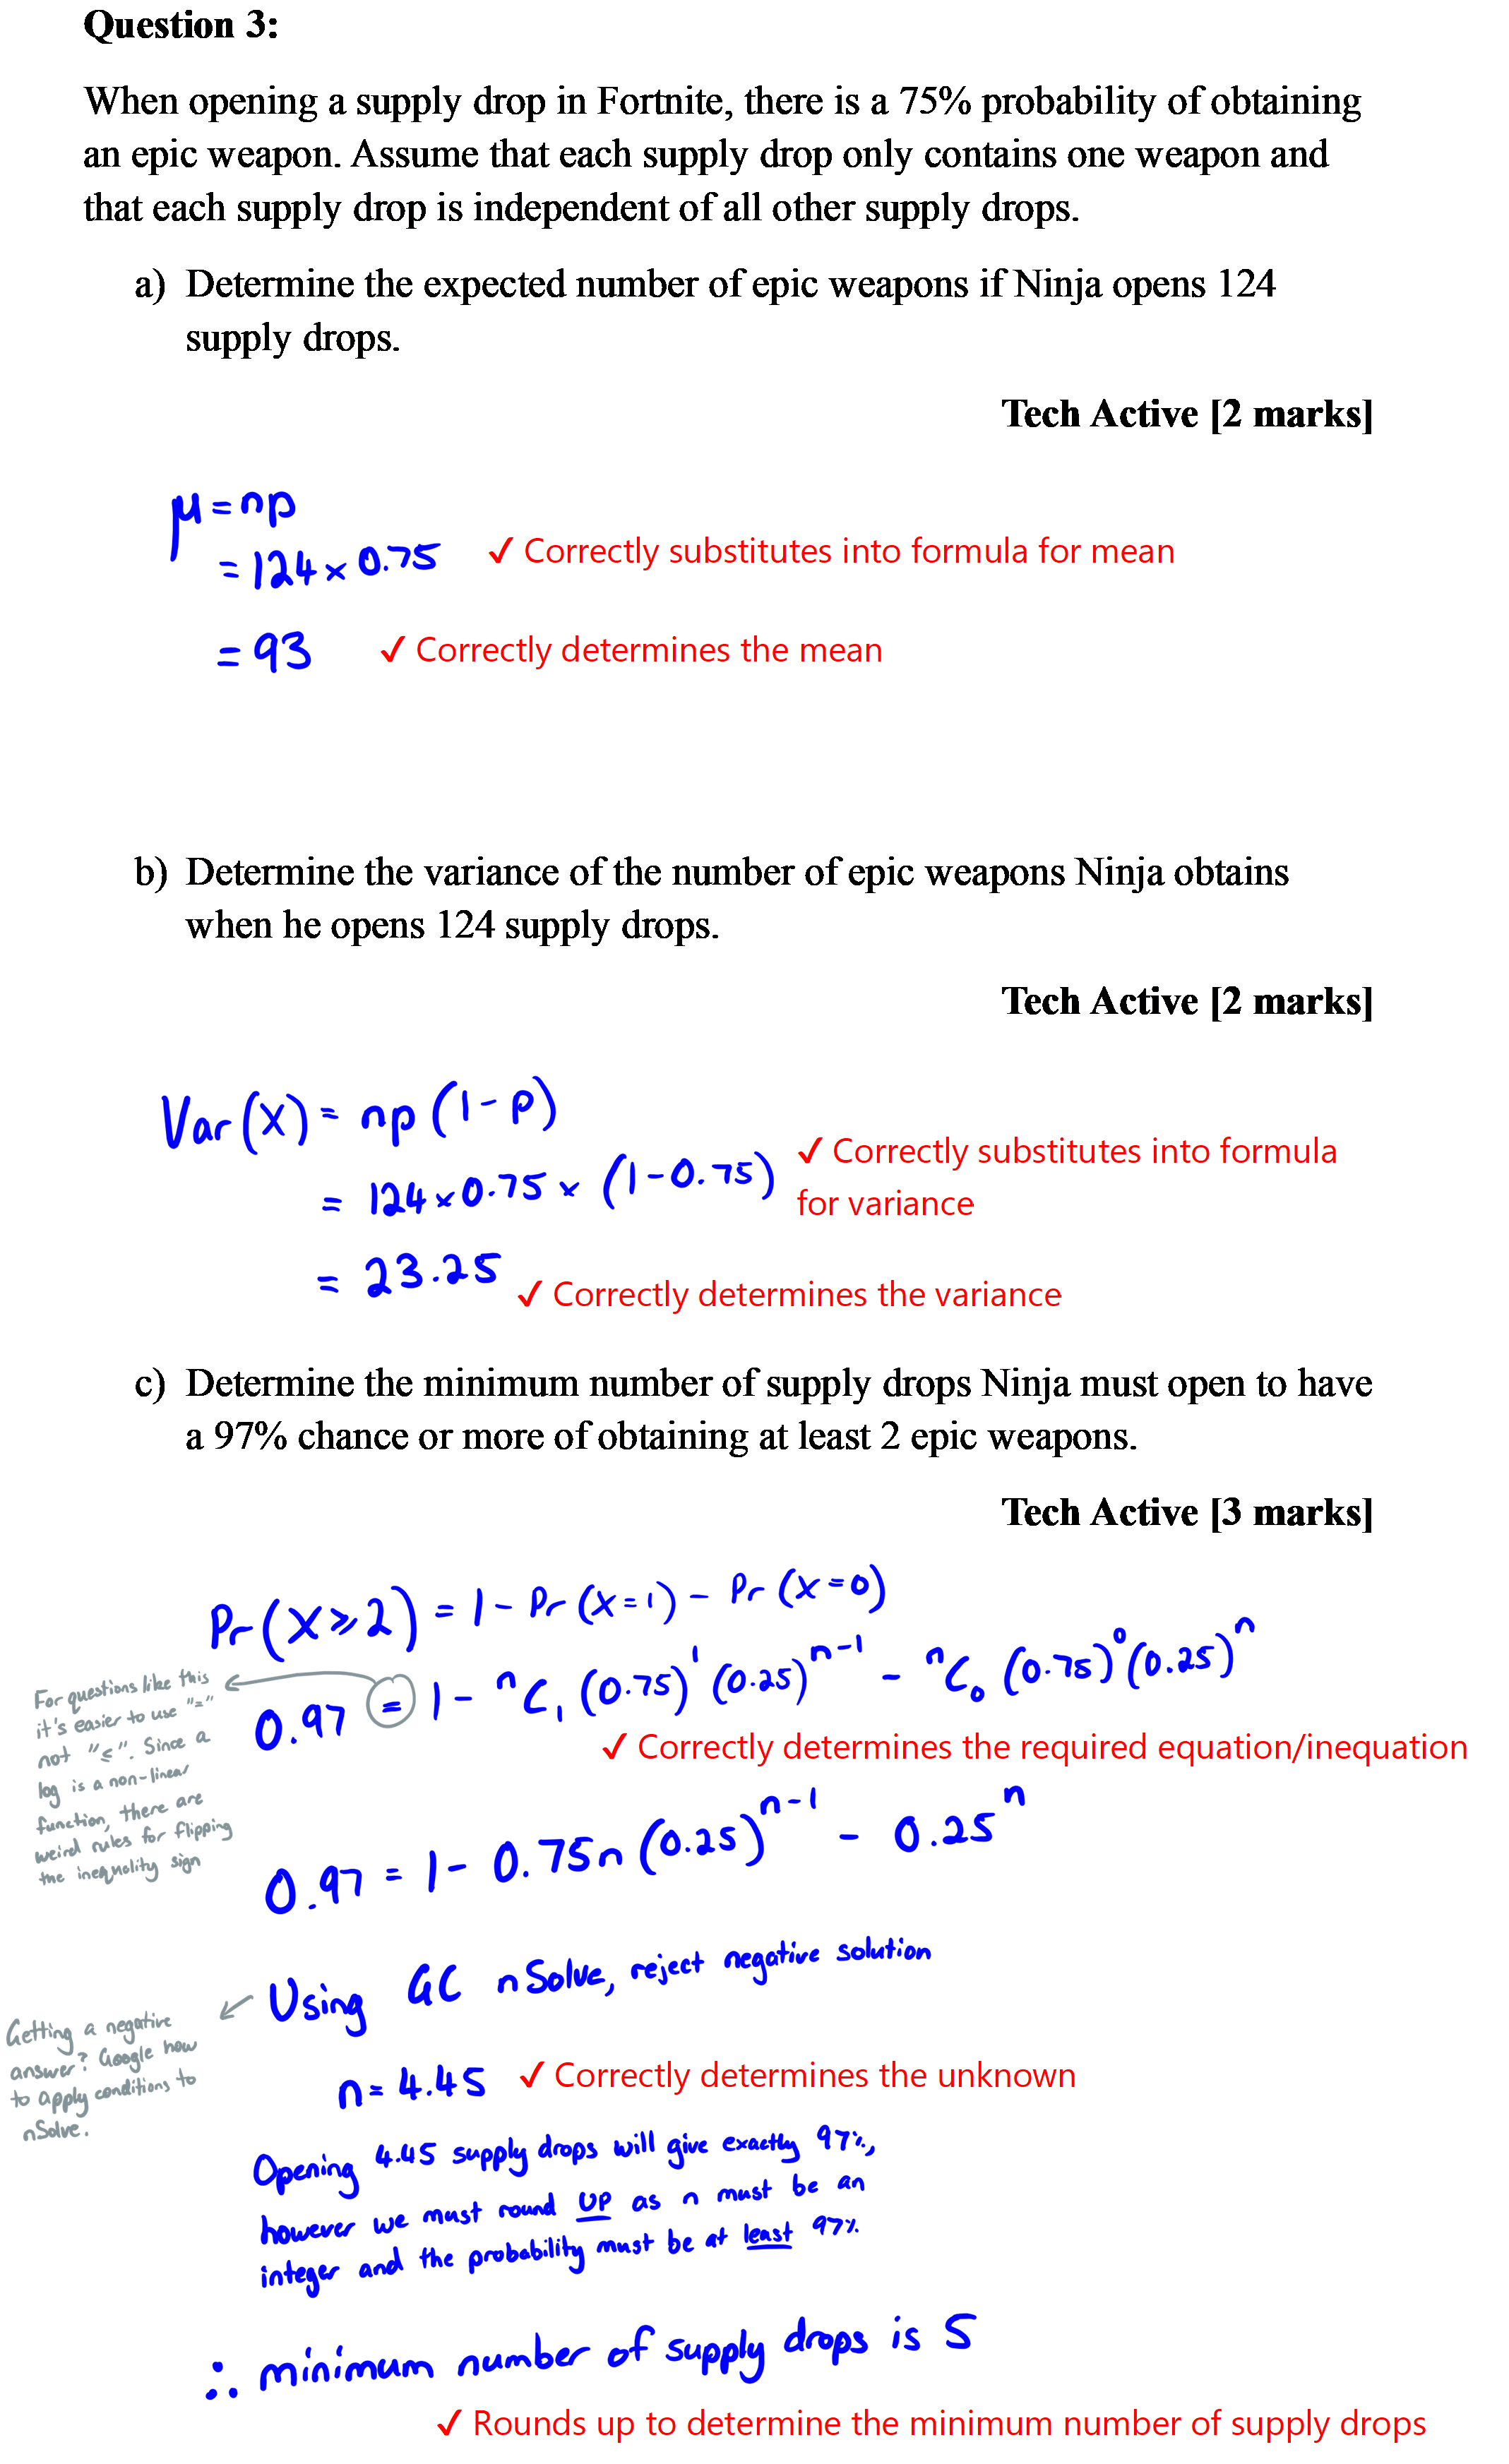 Question 3:
When opening a supply drop in Fortnite, there is a 75% probability of obtaining
an epic weapon. Assume that each supply drop only contains one weapon and
that each supply drop is independent of all other supply drops.
a) Determine the expected number of epic weapons if Ninja opens 124
supply drops.
Tech Active [2 marks]
μ = np
= 124 × 0.75 ✓ Correctly substitutes into formula for mean
= 93 ✓ Correctly determines the mean
b) Determine the variance of the number of epic weapons Ninja obtains
when he opens 124 supply drops.
Tech Active [2 marks]
Var(X) = np(1-p)
= 124 × 0.75 × (1-0.75) ✓ Correctly substitutes into formula
for variance
= 23.25 ✓ Correctly determines the variance
c) Determine the minimum number of supply drops Ninja must open to have
a 97% chance or more of obtaining at least 2 epic weapons.
Tech Active [3 marks]
Pr(X⩾2) = 1 - Pr(X=1) - Pr(X=0)
0.97 = 1 - ⁿC₁ (0.75)¹ (0.25)ⁿ⁻¹ - ⁿC₀ (0.75)⁰ (0.25)ⁿ
For questions like this
it's easier to use "="
not "⩽". Since a
log is a non-linear
function, there are
weird rules for flipping
the inequality sign
✓ Correctly determines the required equation/inequation
0.97 = 1 - 0.75n (0.25)ⁿ⁻¹ - 0.25ⁿ
Using GC nSolve, reject negative solution
Getting a negative
answer? Google how
to apply conditions to
nSolve.
n = 4.45 ✓ Correctly determines the unknown
Opening 4.45 supply drops will give exactly 97%,
however we must round UP as n must be an
integer and the probability must be at least 97%.
∴ minimum number of supply drops is 5
✓ Rounds up to determine the minimum number of supply drops